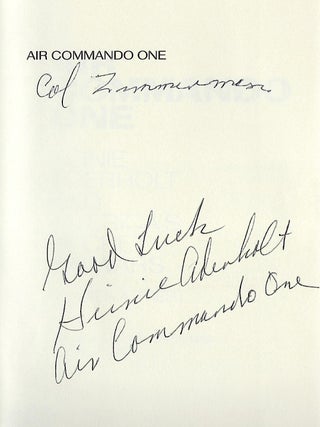 AIR COMMANDO ONE
Col Zimmerman
Good Luck
Heinie Aderholt
Air Commando One